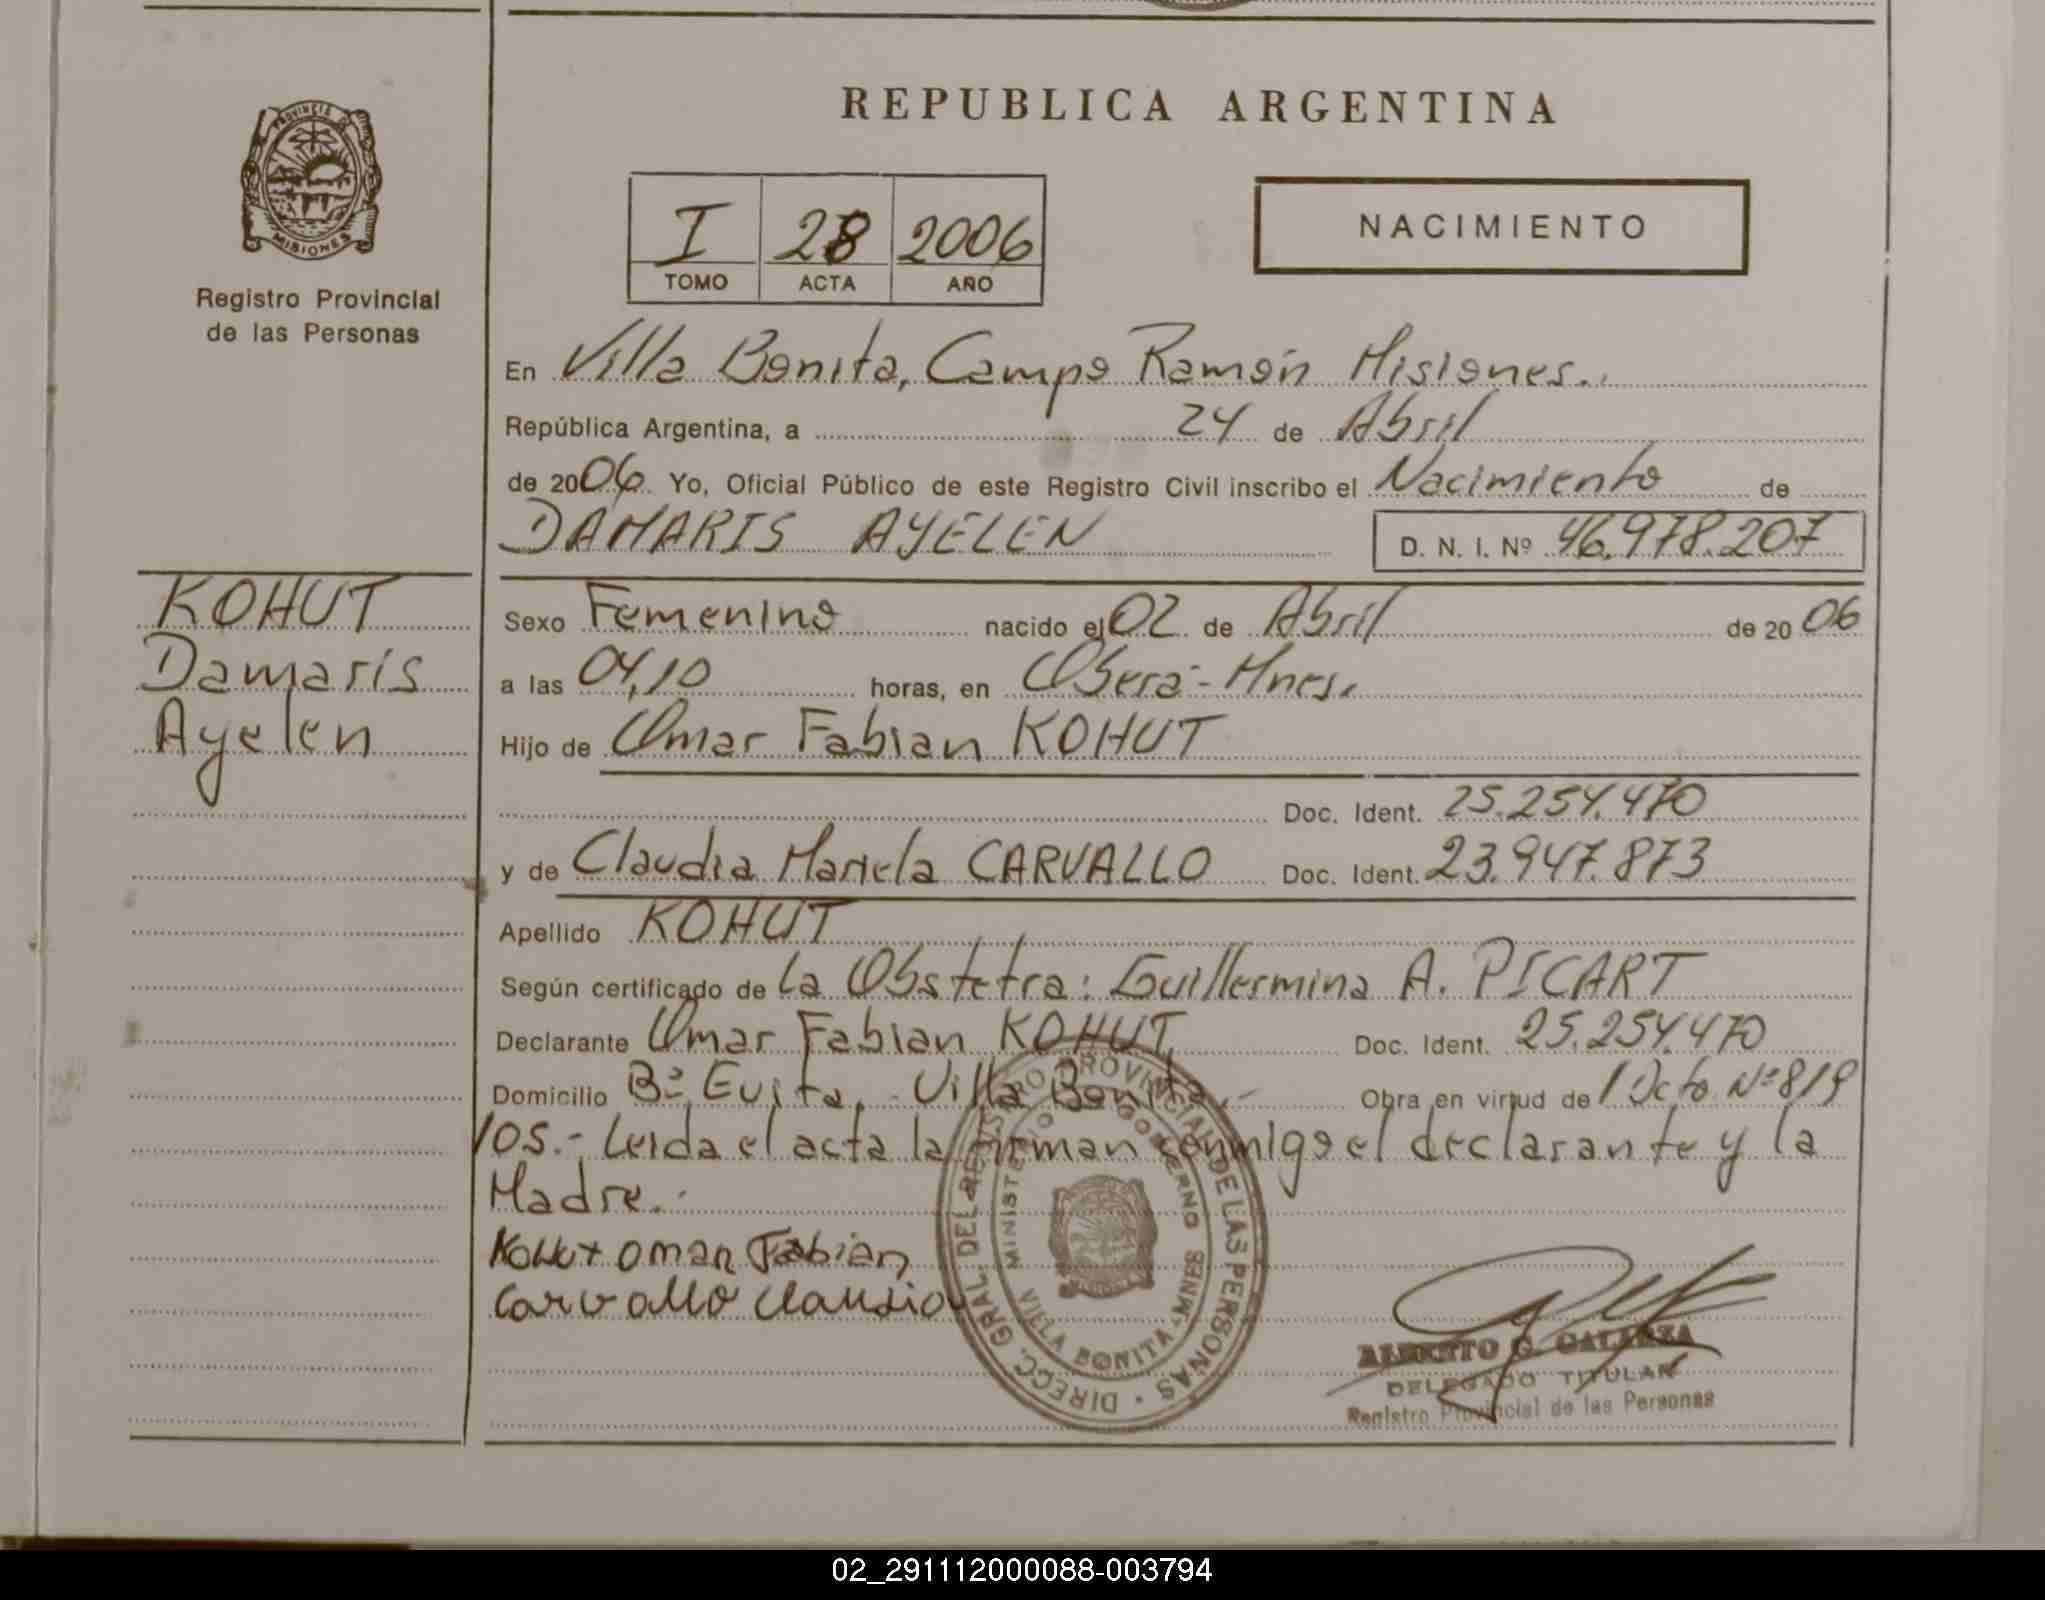 REPUBLICA ARGENTINA
PROVINCIA DE MISIONES
Registro Provincial
de las Personas
I 28 2006
TOMO ACTA AÑO
NACIMIENTO
En Villa Bonita, Campo Ramón Misiones.
República Argentina, a 24 de Abril
de 2006. Yo, Oficial Público de este Registro Civil inscribo el Nacimiento de
DAMARIS AYELEN D. N. I. Nº 46.978.207
KOHUT
Damaris
Ayelen
Sexo Femenino nacido el 02 de Abril de 2006
a las 04,10 horas, en Oberá - Mnes.
Hijo de Omar Fabian KOHUT
Doc. Ident. 25.254.470
y de Claudia Mariela CARVALLO Doc. Ident. 23.947.873
Apellido KOHUT
Según certificado de la Obstetra: Guillermina A. PICART
Declarante Omar Fabian KOHUT Doc. Ident. 25.254.470
Domicilio Bº Evita, - Villa Bonita.- Obra en virtud de Dcto Nº 819
/05.- Leida el acta la firman conmigo el declarante y la
Madre.
Kohut Omar Fabian
Carvallo Claudia
DIRECC. GRAL. DEL REGISTRO PROVINCIAL DE LAS PERSONAS
MINISTERIO GOBIERNO
VILLA BONITA - MNES
ALBERTO G. GALARZA
DELEGADO TITULAR
Registro Provincial de las Personas
02_291112000088-003794